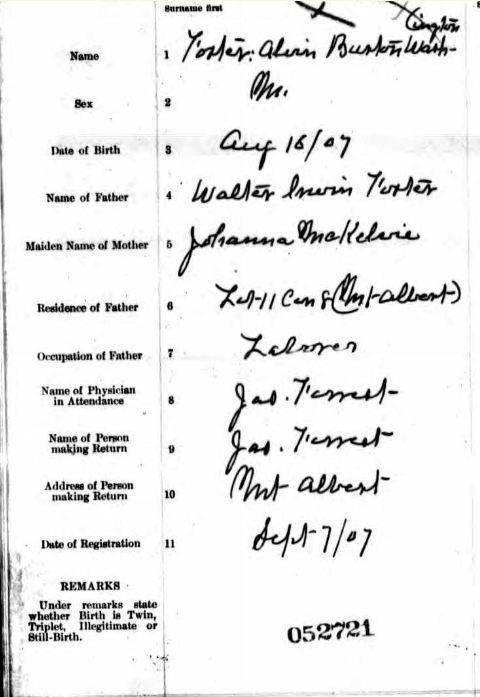 Surname first
ington
Name 1 Foster: Alvin Burton Wash-
Sex 2 M.
Date of Birth 3 Aug 16/07
Name of Father 4 Walter Irwin Foster
Maiden Name of Mother 5 Johanna McKelvie
Residence of Father 6 Lot 11 Con 8 (Mt Albert)
Occupation of Father 7 Laborer
Name of Physician
in Attendance 8 Jas. Forrest
Name of Person
making Return 9 Jas. Forrest
Address of Person
making Return 10 Mt Albert
Date of Registration 11 Sept 7/07
REMARKS
Under remarks state
whether Birth is Twin,
Triplet, Illegitimate or
Still-Birth.
052721